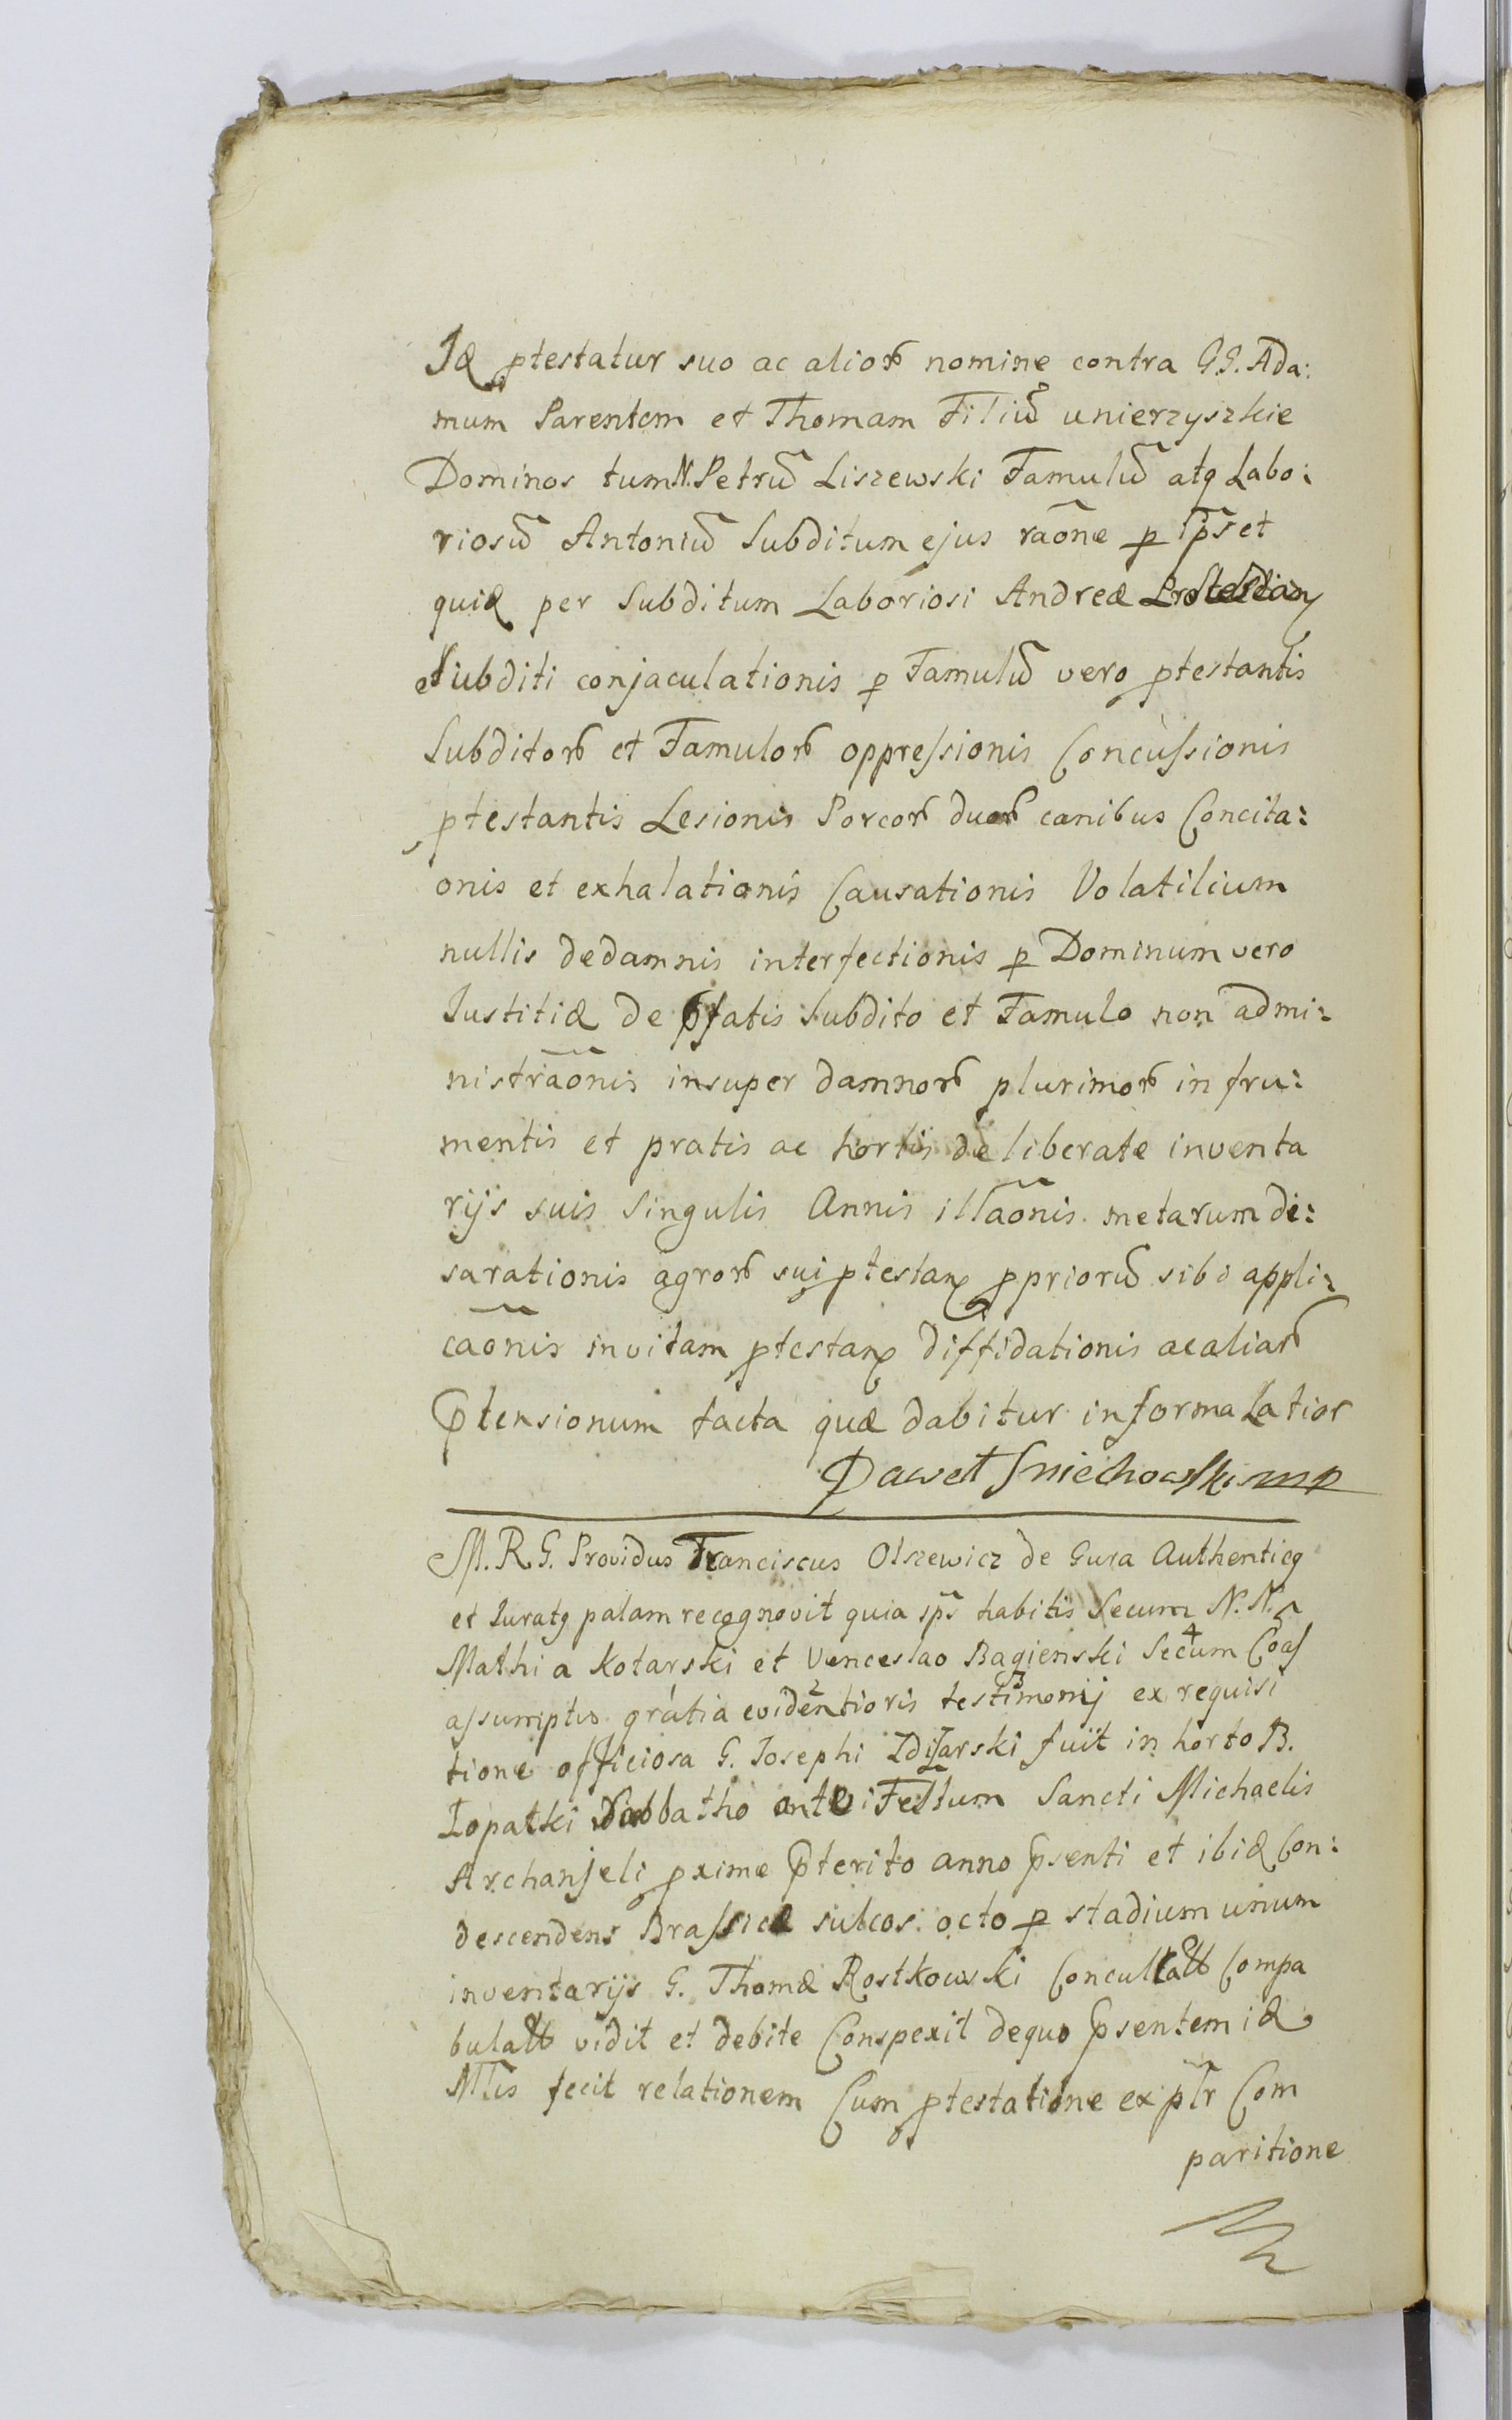 Idē ptestatur suo ac alior̄ nomine contra GG. Ada:
mum Parentem et Thomam Filiū unierzyszkie
Dominos tum N. Petrū Liszewski Famulū atq Labo:
riosū Antoniū Subditum ejus raōne p ip̄s et
quidē per Subditum Laboriosi Andreæ
et Subditi conjaculationis p Famulū vero ptestantis
Subditor̄ et Famulor̄ oppressionis Concussionis
ptestantis Lesionis Porcor̄ duor̄ canibus Concita:
onis et exhalationis Causationis Volatilium
nullis de damnis interfectionis p Dominum vero
Iustitiæ de p̄fatis Subdito et Famulo non admi:
nistrāonis insuper damnor̄ plurimor̄ in fru:
mentis et pratis ac hortis deliberate inventa
rijs suis Singulis Annis illāonis metarum di:
sarationis agror̄ sui ptestan̄ ppriorū sibi appli:
cāonis invitam ptestan̄ diffidationis ac aliar̄
P̄tensionum facta quæ dabitur in forma Latior
Paweł Sniechowski mp
M. R. G. Providus Franciscus Olszewicz de Gura Authenticq
et Iuratq palam recognovit quia ip̄s habitis Secum N. N.
Mathia Kotarski et Venceslao Bagienski Secum 4 Coās
assumptis gratia evidentioris 2 testimonij 3 ex requisi
tione officiosa G. Iosephi Zdiarski fuit in horto B.
Łopatki Sabbatho ante Festum Sancti Michaelis
Archanjeli pxime P̄terito anno P̄senti et ibidē Con:
descendens Brassicæ sulcos octo p stadium unum
inventarijs G. Thomæ Rostkowski Concultatos Compa
bulatos vidit et debite Conspexit de quo P̄sentem idē
Mlis fecit relationem Cum ptestatione ex pl̄r Com
paritione